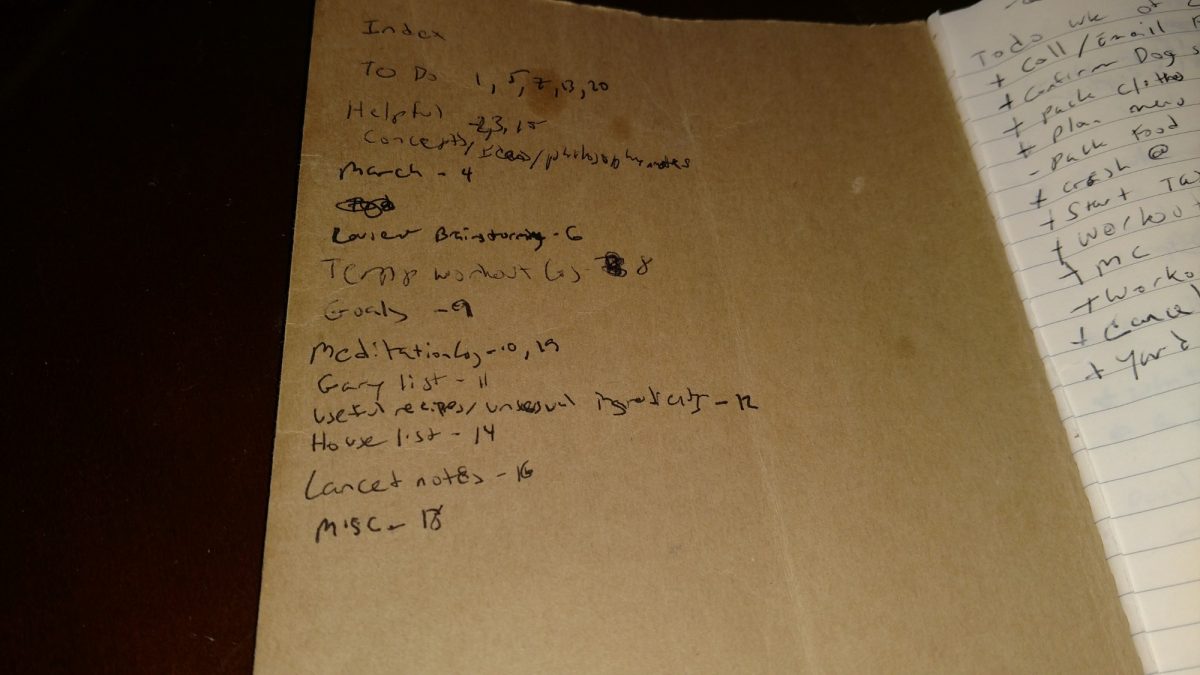 Index
To Do 1, 5, 7, 13, 20
Helpful 2, 3, 15
Concepts/Ideas/philosophy notes
March - 4
Brainstorming - 6
workout log - 8
Goals - 9
Meditation log - 10, 19
Gary list - 11
Useful recipes/unusual ingredients - 12
House list - 14
Lancet notes - 16
Misc - 18
Todo wk of
+ Call/Email
+ Confirm Dog s
+ Pack clothes
+ Plan menu
- Pack Food
+ crash @
+ Start Tax
+ workout
+ MC
+ Worko
+ Cancel
+ Yard